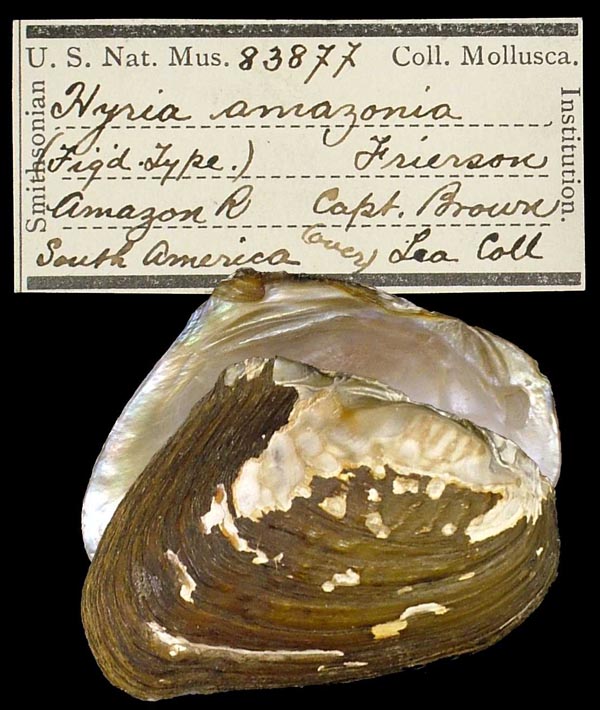 U. S. Nat. Mus. 83877 Coll. Mollusca.
Smithsonian
Institution.
Hyria amazonia
(Fig'd. Type.) Frierson
Amazon R Capt. Brown
South America (over) Lea Coll